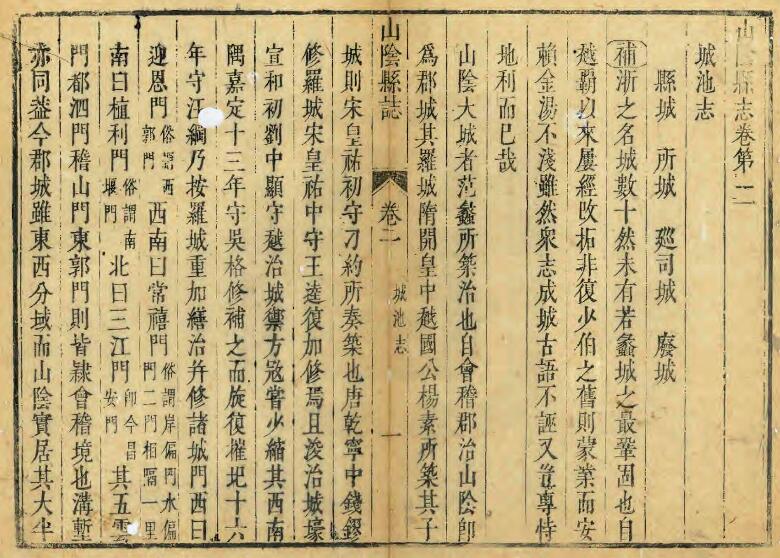 山陰縣志卷第二
城池志
縣城 所城 巡司城 廢城
補浙之名城數十然未有若蠡城之最鞏固也自
越霸以來屢經改拓非復少伯之舊則蒙業而安
賴金湯不淺雖然衆志成城古語不誣又豈專恃
地利而已哉
山陰大城者范蠡所築治也自會稽郡治山陰卽
爲郡城其羅城隋開皇中越國公楊素所築其子
山陰縣誌 卷二 城池志 一
城則宋皇祐初守刁約所奏築也唐乾寧中錢鏐
修羅城宋皇祐中守王逵復加修焉且浚治城壕
宣和初劉中顯守越治城禦方寇嘗少縮其西南
隅嘉定十三年守吳格修補之而旋復摧圯十六
年守汪綱乃按羅城重加繕治幷修諸城門西曰
迎恩門俗謂西郭門西南曰常禧門俗謂岸偏門水偏門二門相隔一里
南曰植利門俗謂南堰門北曰三江門卽今昌安門其五雲
門都泗門稽山門東郭門則皆隷會稽境也溝塹
亦同益今郡城雖東西分域而山陰實居其大半